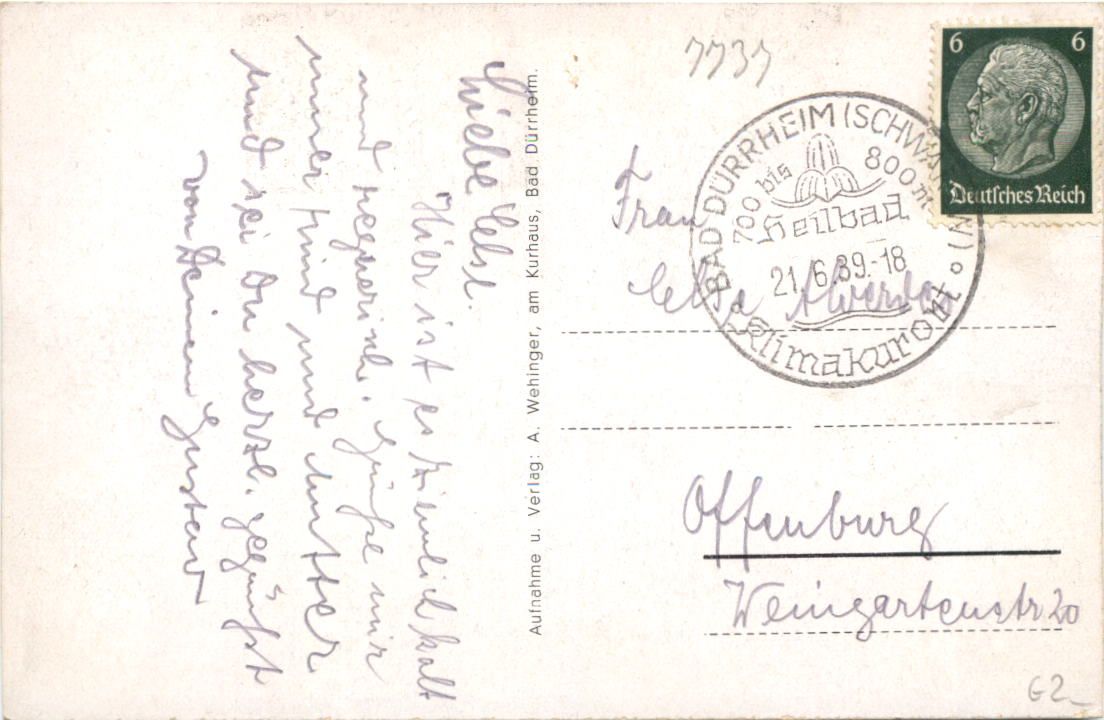 Liebe Else.
Hier ist es ziemlich kalt
und regnerisch. Grüße mir
unser Kind und Mutter
und sei Du herzl. gegrüßt
von Deinem Gustav
Aufnahme u. Verlag: A. Wehinger, am Kurhaus, Bad Dürrheim.
7737
6 6
Deutsches Reich
BAD DÜRRHEIM (SCHWARZWALD)
700 bis 800 m
Heilbad
21.6.39.-18
Klimakurort
Frau
Else
Offenburg
Weingartenstr 20
G2